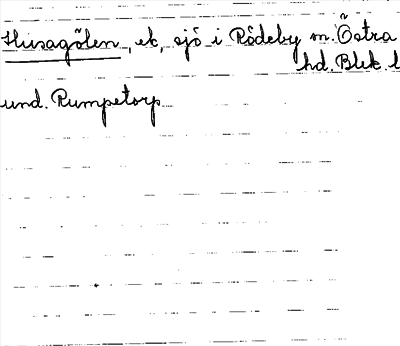 Husagölen, ek, sjö i Rödeby sn. Östra
hd. Blek. l
und. Rumpetorp